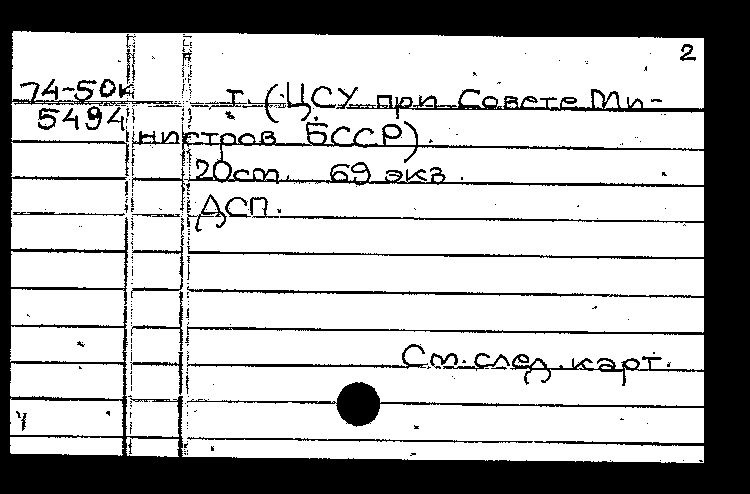 2
74-50к т. (ЦСУ при Совете Ми-
5494 нистров БССР).
20ст. 69 экз.
ДСП.
См. след. карт.